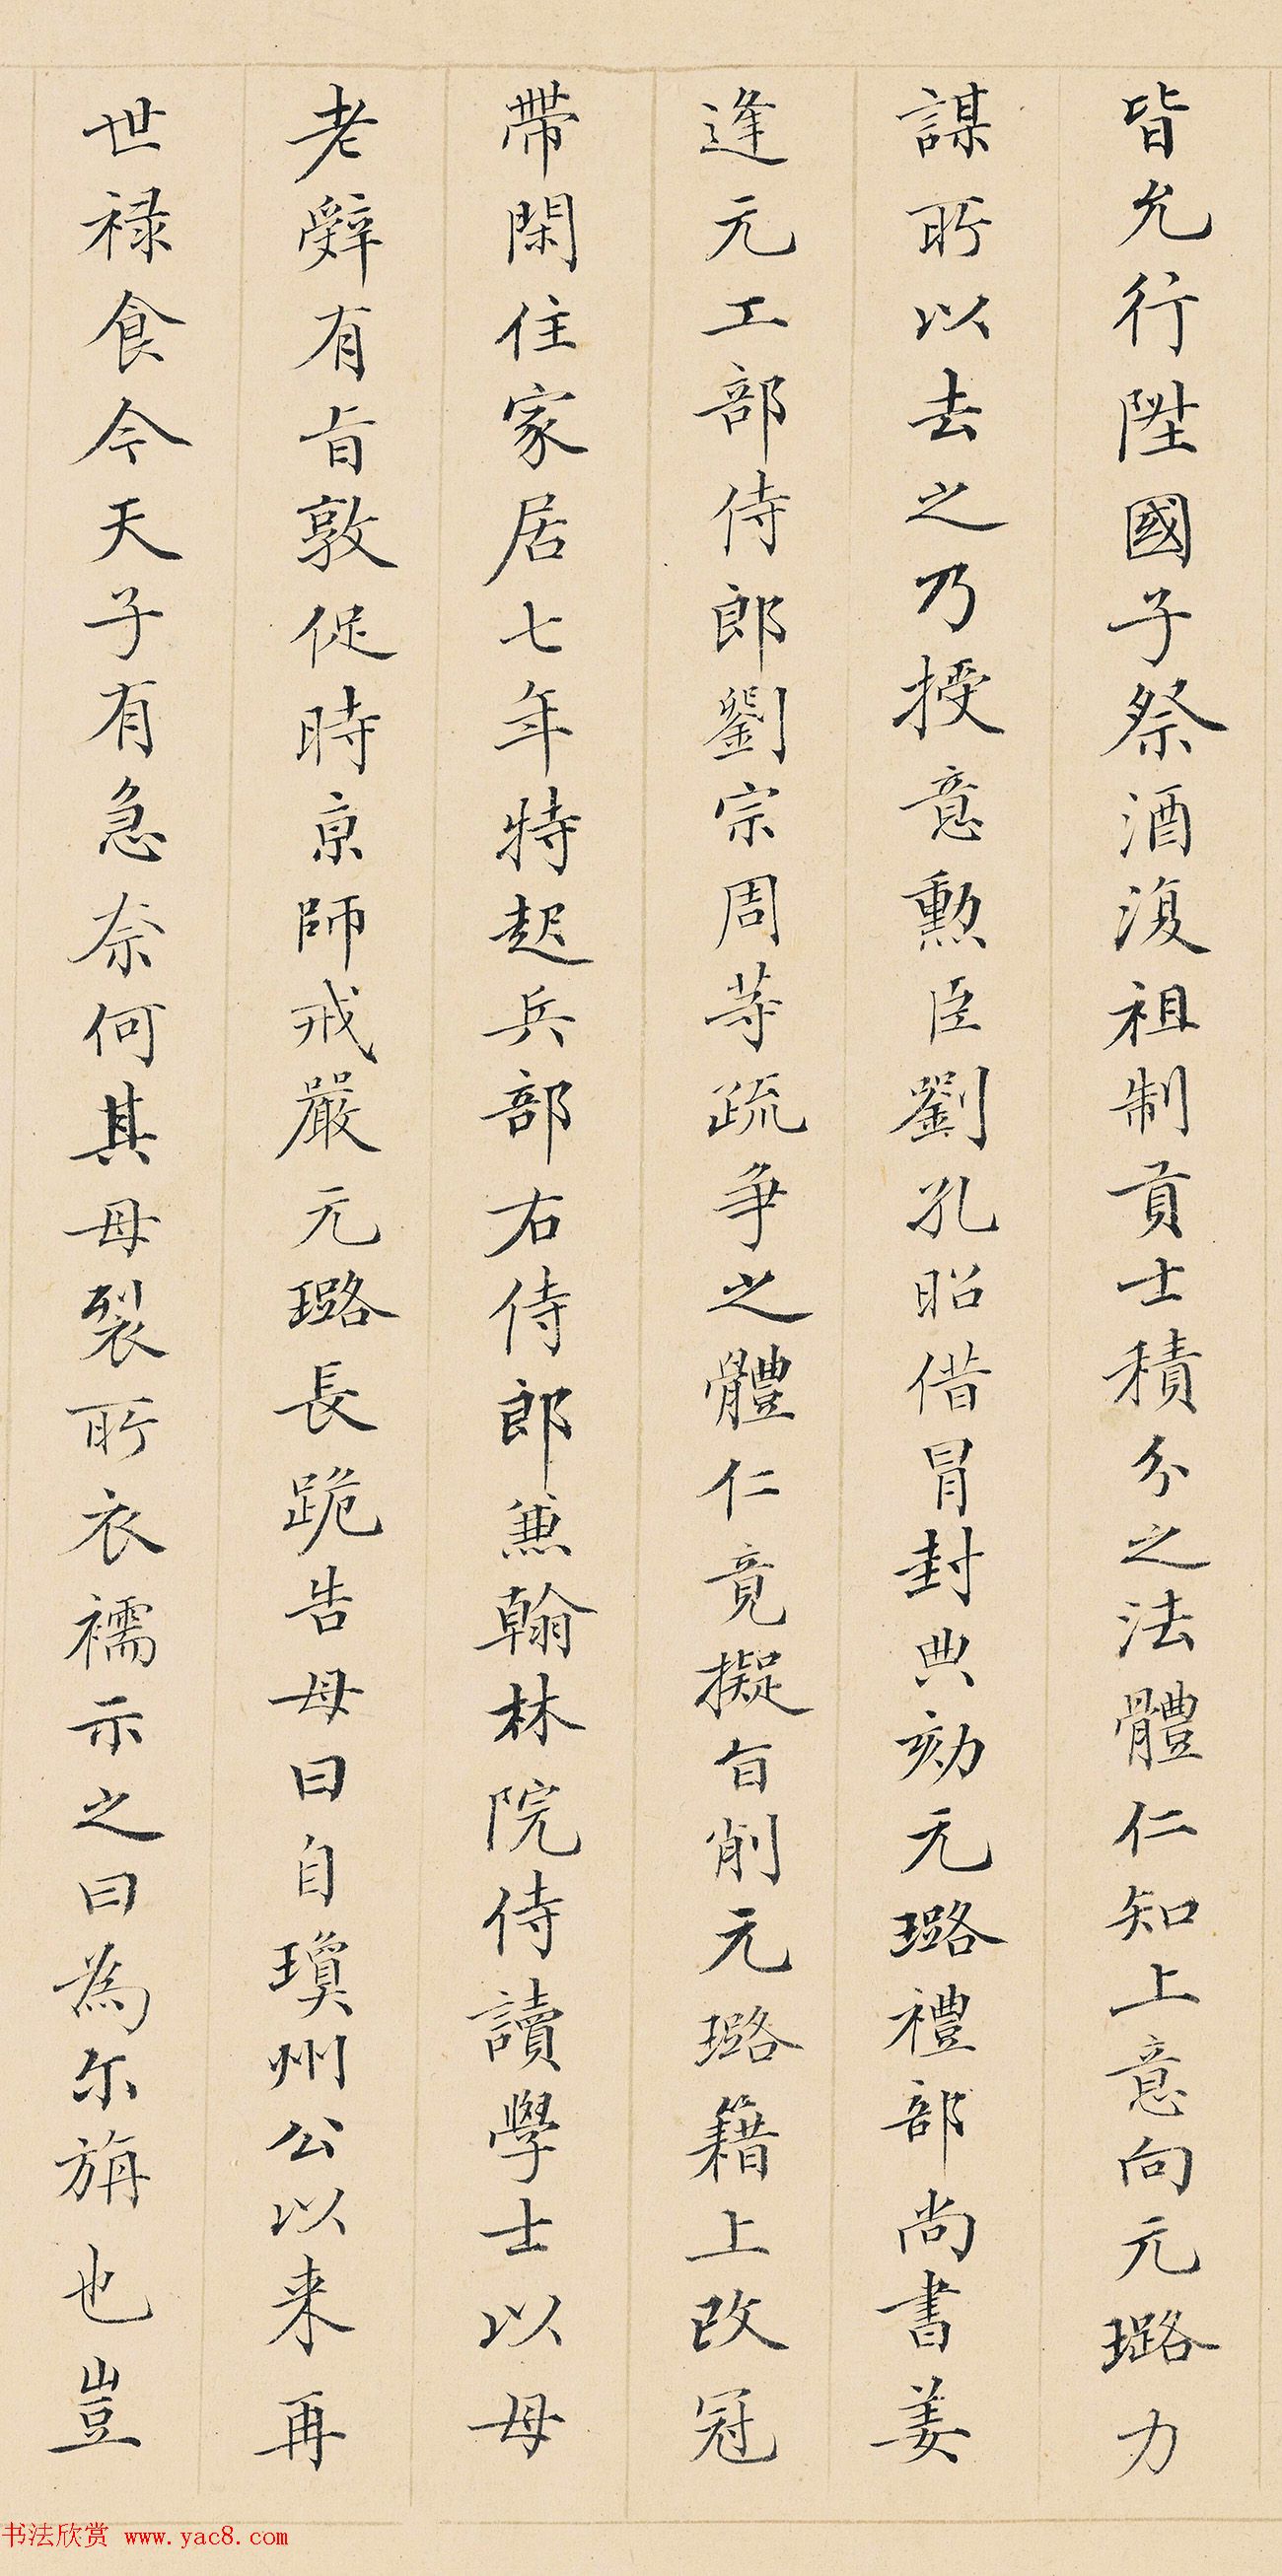 皆允行陞國子祭酒復祖制貢士積分之法體仁知上意向元璐力
謀所以去之乃授意勲臣劉孔昭借冒封典劾元璐禮部尚書姜
逢元工部侍郎劉宗周等疏爭之體仁竟擬旨削元璐籍上改冠
帶閑住家居七年特起兵部右侍郎兼翰林院侍讀學士以母
老辭有旨敦促時京師戒嚴元璐長跪告母曰自瓊州公以来再
世禄食今天子有急奈何其母裂所衣襦示之曰為尔旃也豈
书法欣赏 www.yac8.com